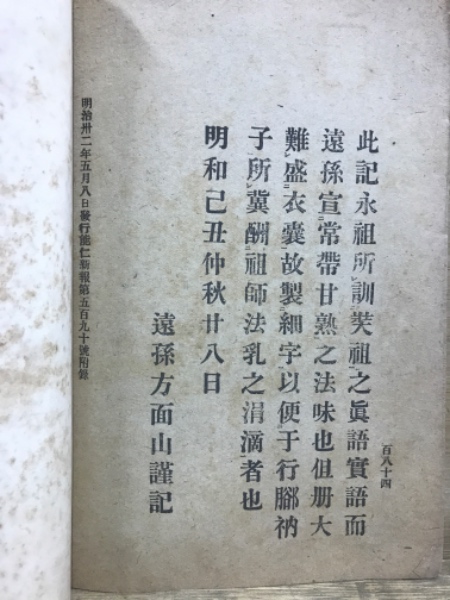 此記永祖所訓奘祖之眞語實語而
遠孫宣常帶甘熟之法味也但册大
難盛衣嚢故製細字以便于行脚衲
子所冀酬祖師法乳之涓滴者也
明和己丑仲秋廿八日
遠孫方面山謹記
百八十四
明治卅二年五月八日發行能仁新報第五百九十號附錄